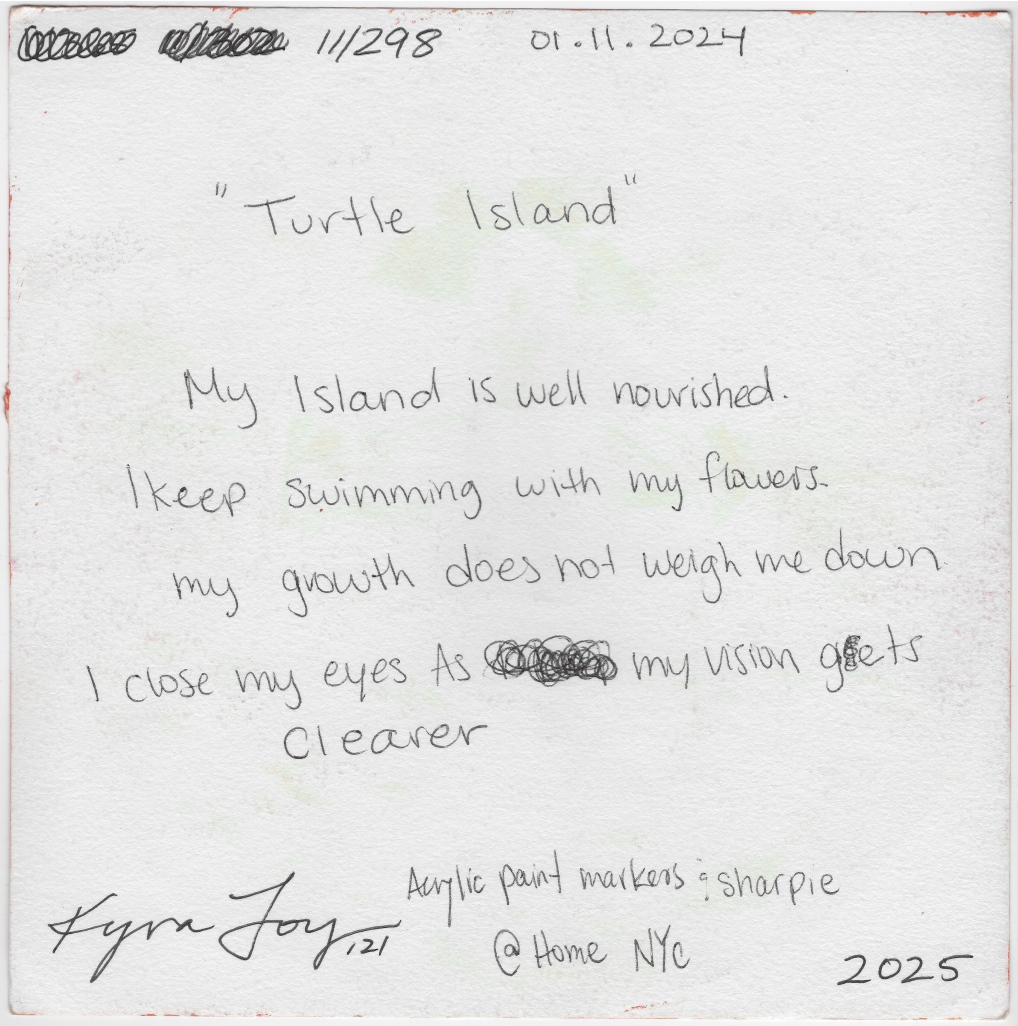 11/298 01.11.2024
"Turtle Island"
My Island is well nourished.
I keep swimming with my flowers.
my growth does not weigh me down.
I close my eyes As my vision gets
clearer
Acrylic paint markers & sharpie
Kyra Joy, 121
@ Home NYC
2025